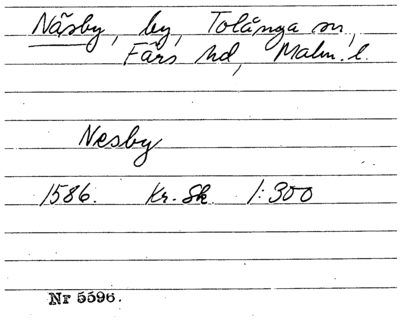 Näsby, by, Tolånga sn,
Färs hd, Malm. l.
Nesby
1586. Kr. Sk. 1:300
Nr 5596.